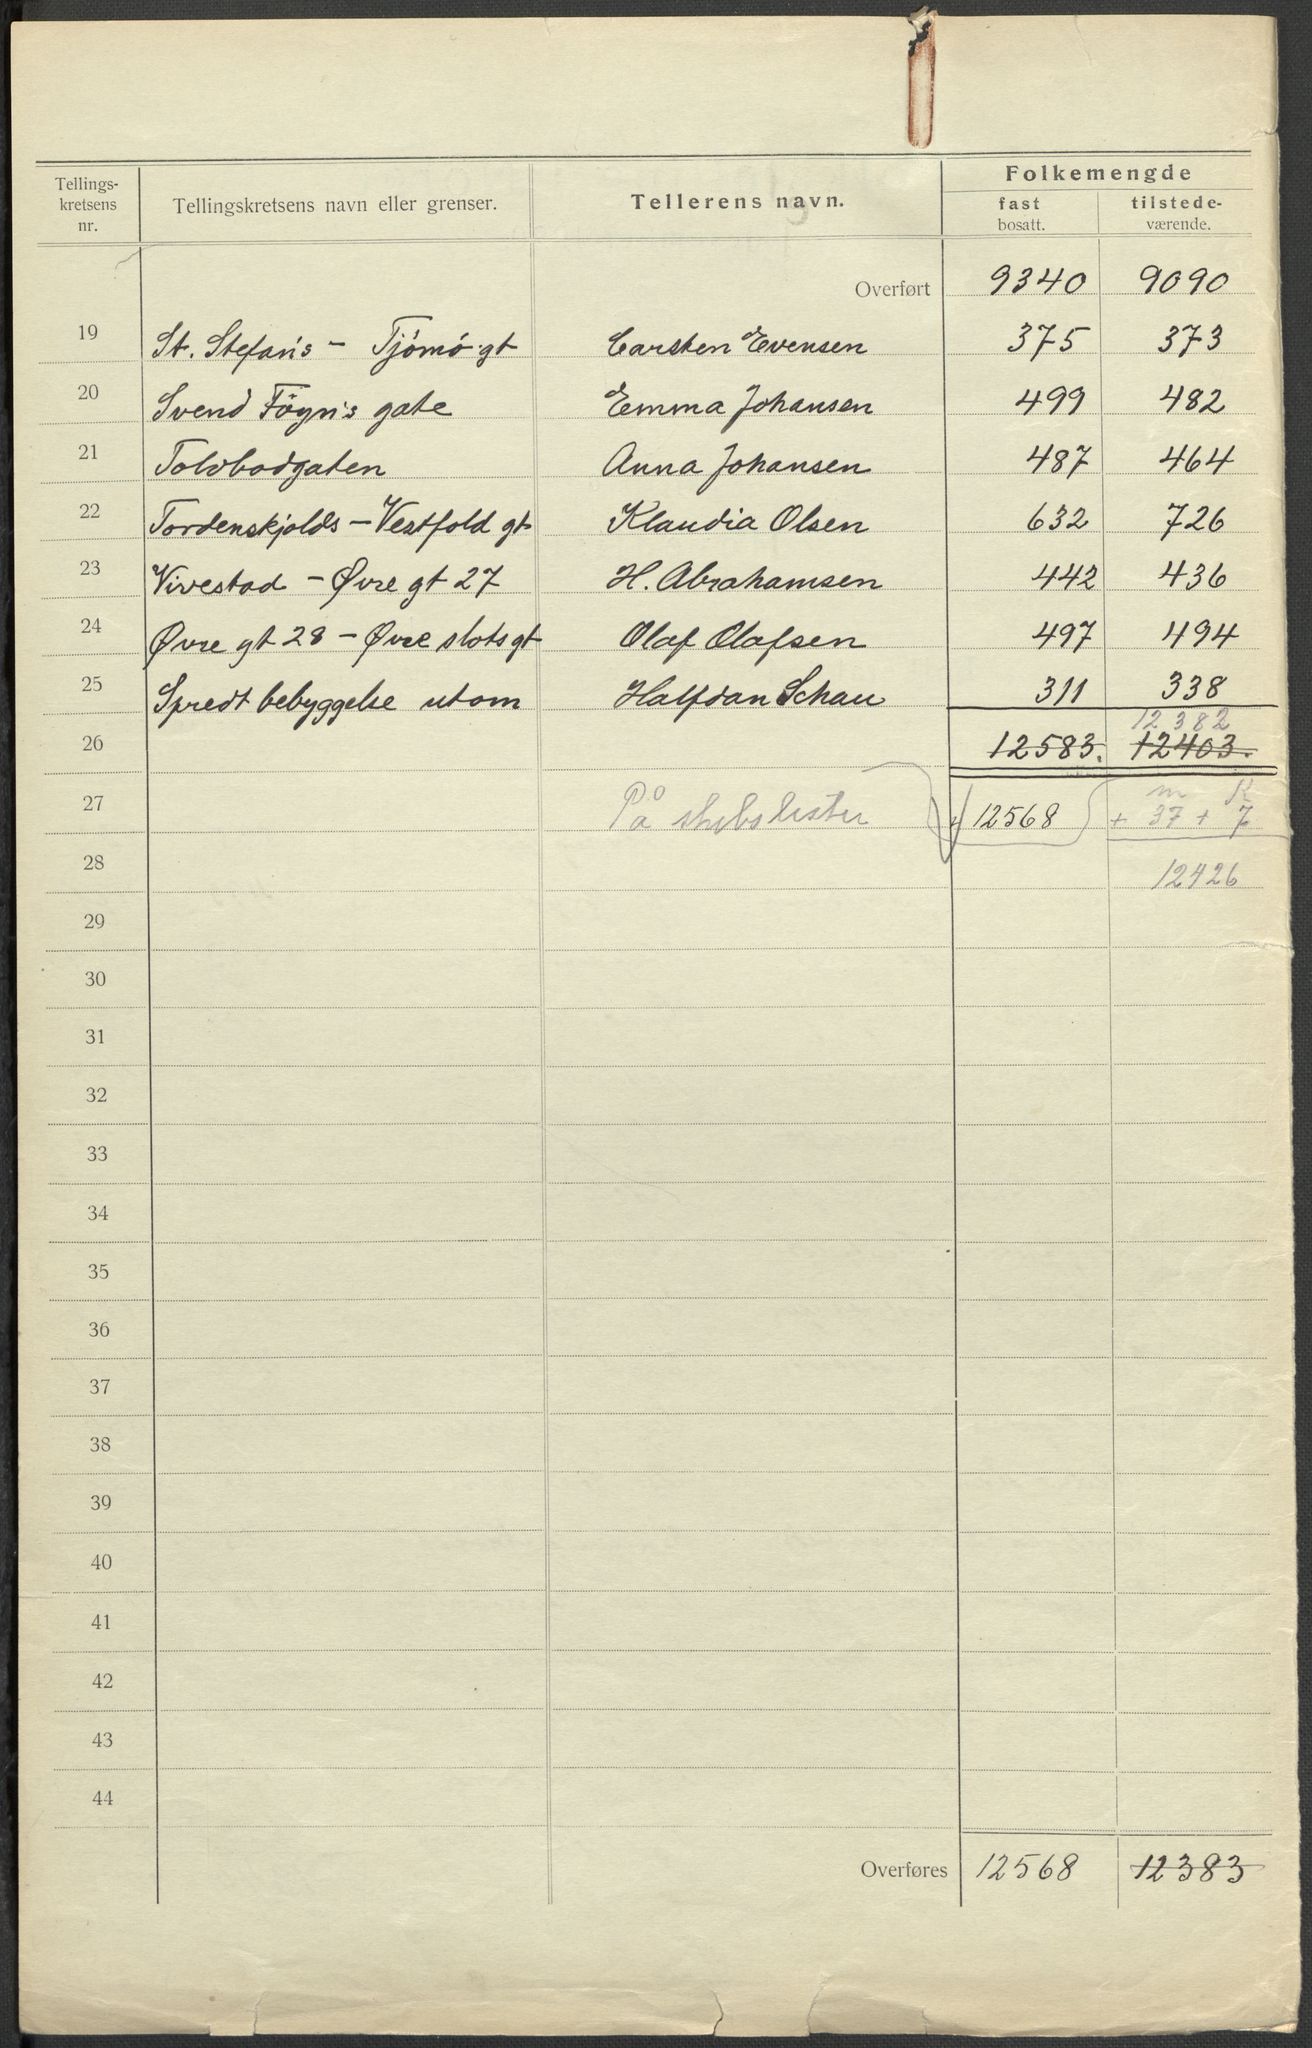 Tellings-kretsens nr. Tellingskretsens navn eller grenser. Tellerens navn. Folkemengde
fast bosatt. tilstede-værende.
Overført 9340 9090
19 St. Stefan's - Tjömö gt Carsten Evensen 375 373
20 Svend Föyn's gate Emma Johansen 499 482
21 Toldbodgaten Anna Johansen 487 464
22 Tordenskjolds - Vestfold gt Klaudia Olsen 632 726
23 Vivestad - Øvre gt 27 H. Abrahamsen 442 436
24 Øvre gt 28 - Øvre slotsgt Olaf Olafsen 497 494
25 Spredt bebyggelse utom Halfdan Schau 311 338
12382
26 12583. 12403.
m K
27 På skibslister 12568 + 37 + 7
28 12426
29
30
31
32
33
34
35
36
37
38
39
40
41
42
43
44
Overføres 12568 12383